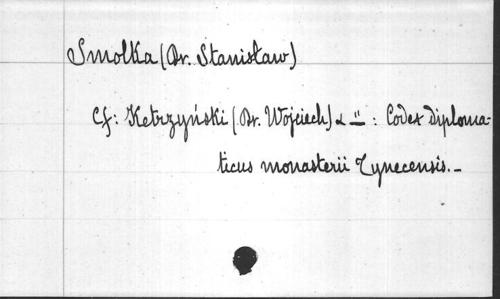 Smolka (Dr. Stanisław)
Cf: Kętrzyński (Dr. Wojciech) & = : Codex diploma-
ticus monasterii Tynecensis. -